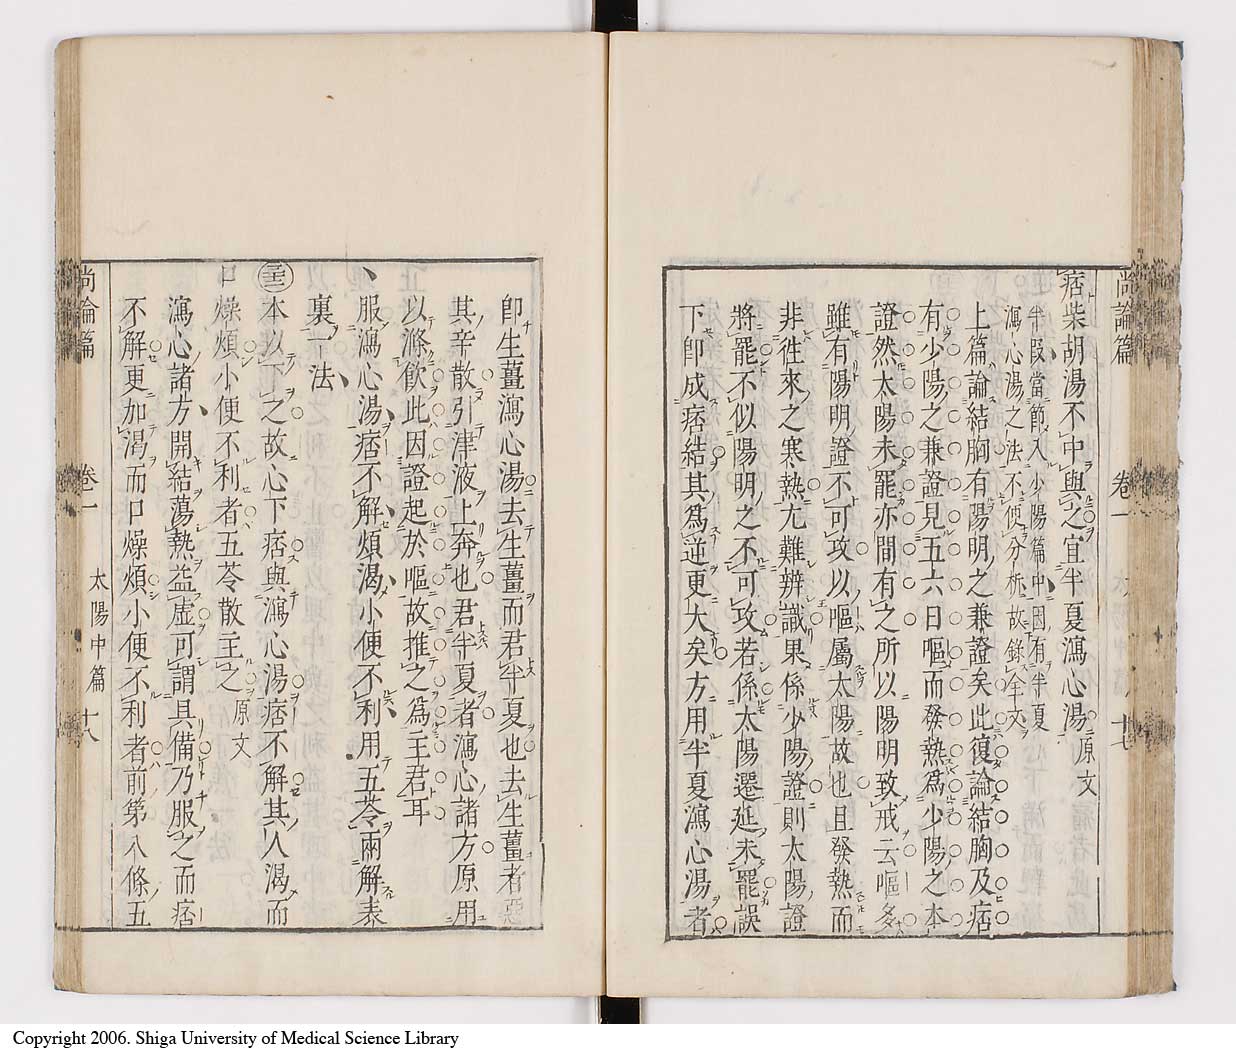 尚論篇 卷一 十七
痞柴胡湯不中與之宜半夏瀉心湯原文
半段當節入少陽篇中因有半夏
瀉心湯之法不便分析故錄全文
上篇論結胸有陽明之兼證矣此復論結胸及痞
有少陽之兼證見五六日嘔而發熱爲少陽之本
證然太陽未罷亦間有之所以陽明致戒云嘔多
雖有陽明證不可攻以嘔屬太陽故也且發熱而
非徃來之寒熱尢難辨識果係少陽證則太陽證
將罷不似陽明之不可攻若係太陽遷延未罷誤
下卽成痞結其爲逆更大矣方用半夏瀉心湯者
卽生薑瀉心湯去生薑而君半夏也去生薑者惡
其辛散引津液上奔也君半夏者瀉心諸方原用
以滌飮此因證起於嘔故推之爲主君耳
服瀉心湯痞不解煩渴小便不利用五苓兩解表
裏一法
本以下之故心下痞與瀉心湯痞不解其人渴而
口燥煩小便不利者五苓散主之原文
瀉心諸方開結蕩熱益虛可謂具備乃服之而痞
不解更加渴而口燥煩小便不利者前第八條五
尚論篇 卷一 太陽中篇 十八
Copyright 2006. Shiga University of Medical Science Library